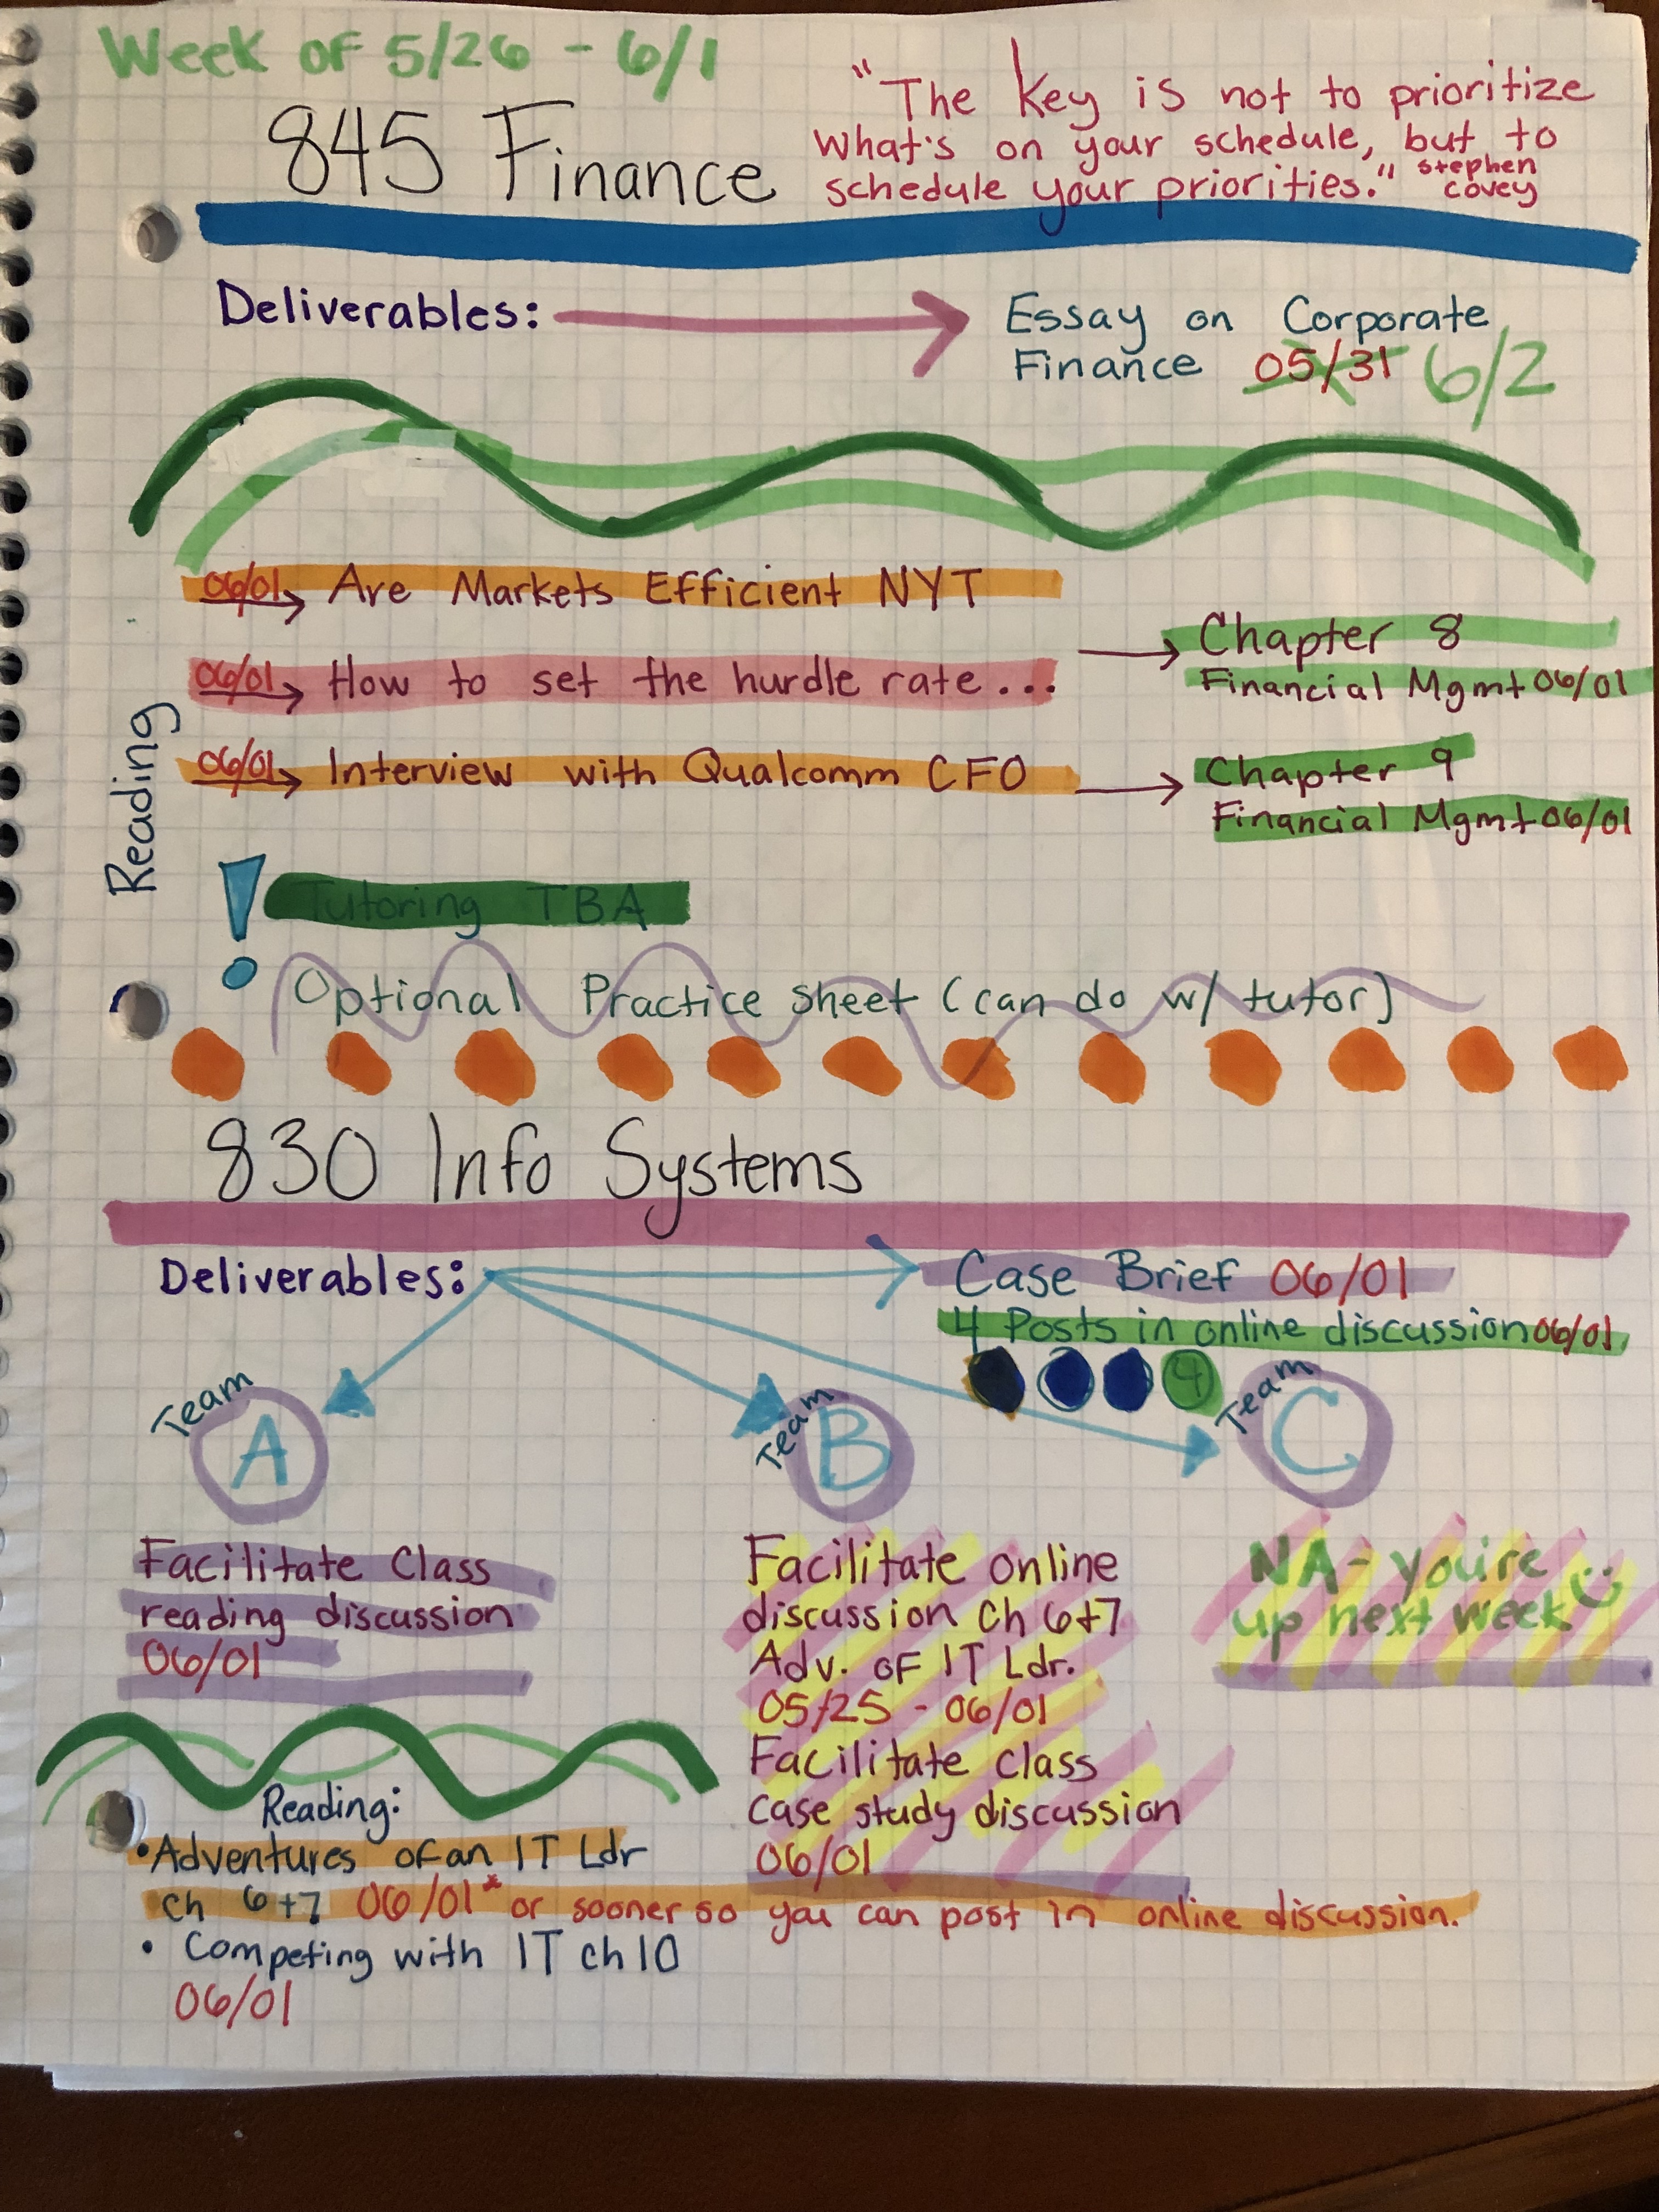 Week of 5/26 - 6/1
845 Finance
"The key is not to prioritize
what's on your schedule, but to
schedule your priorities." stephen
covey
Deliverables:
Essay on Corporate
Finance 05/31 6/2
Reading
06/01 Are Markets Efficient NYT
06/01 How to set the hurdle rate...
06/01 Interview with Qualcomm CFO
Chapter 8
Financial Mgmt 06/01
Chapter 9
Financial Mgmt 06/01
! Tutoring TBA
Optional Practice sheet (can do w/ tutor)
830 Info Systems
Deliverables:
Case Brief 06/01
4 Posts in online discussion 06/01
4
Team A
Facilitate Class
reading discussion
06/01
Team B
Facilitate online
discussion Ch 6+7
Adv. of IT Ldr.
05/25 - 06/01
Facilitate class
case study discussion
06/01
Team C
NA - you're
up next week
Reading:
• Adventures of an IT Ldr
ch 6+7 06/01* or sooner so you can post in online discussion.
• Competing with IT ch 10
06/01